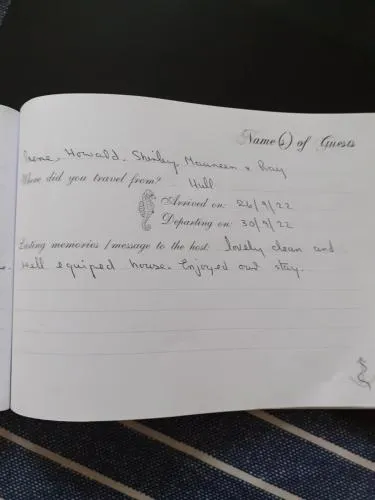 Name(s) of Guests
Irene. Howald. Shirley. Maureen & Ray
Where did you travel from? Hull
Arrived on: 26/9/22
Departing on: 30/9/22
Lasting memories / message to the host: lovely clean and
well equiped house. Enjoyed our stay.